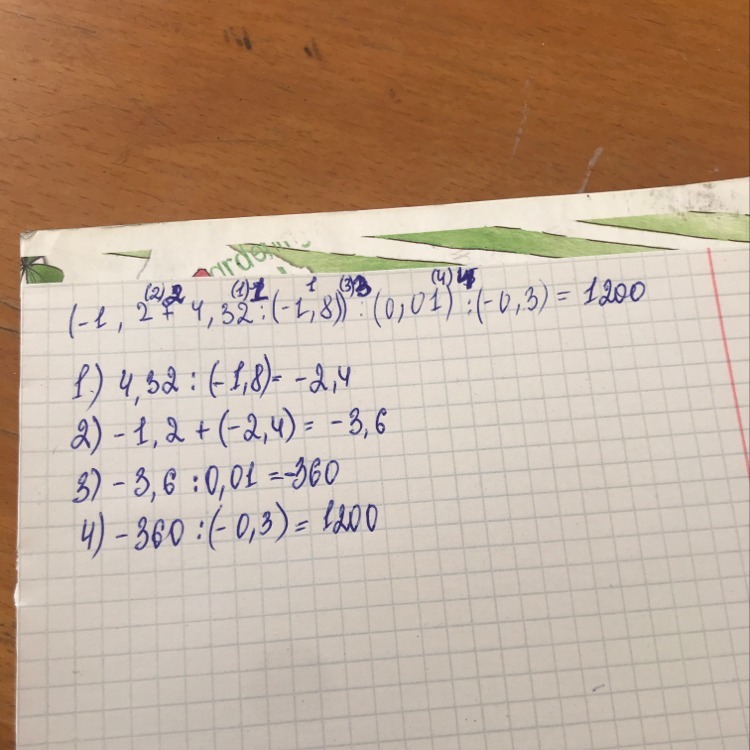 ardenin
(2) 2 (1) 1 1 (3) 3 (4) 4
(-1,2 + 4,32 : (-1,8)) : (0,01) : (-0,3) = 1200
1.) 4,32 : (-1,8) = -2,4
2) -1,2 + (-2,4) = -3,6
3) -3,6 : 0,01 = -360
4) -360 : (-0,3) = 1200